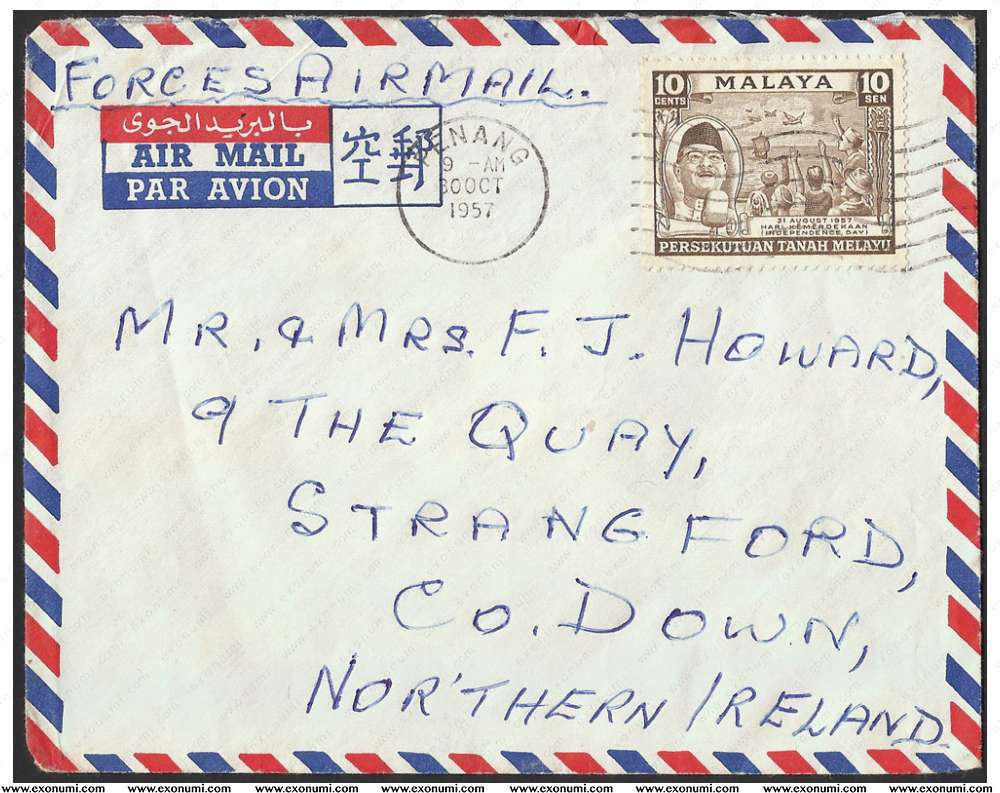 FORCES AIRMAIL.
بالبريد الجوى
AIR MAIL
PAR AVION
空郵
PENANG
9 - AM
30 OCT
1957
10 CENTS MALAYA 10 SEN
31 AUGUST 1957
HARI KEMERDEKAAN
(INDEPENDENCE DAY)
PERSEKUTUAN TANAH MELAYU
MR. & MRS. F. J. HOWARD,
9 THE QUAY,
STRANGFORD,
CO. DOWN,
NORTHERN IRELAND.
www.exonumi.com www.exonumi.com www.exonumi.com www.exonumi.com www.exonumi.com www.exonumi.com www.exonumi.com www.exonumi.com